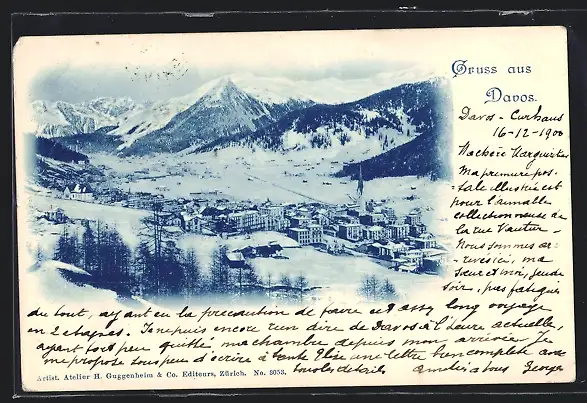 Gruss aus
Davos.
Davos - Curhaus
16-12-1900
Ma chère Marguerite
Ma première pos-
tale illustrée est
pour l'aimable
collectionneuse de
la rue Vautier
Nous sommes ar-
rivés ici, ma
sœur et moi, jeudi
soir, pas fatigués
du tout, ayant eu la précaution de faire cet assez long voyage
en 2 étapes. Je ne puis encore rien dire de Davos à l'heure actuelle,
ayant fort peu quitté ma chambre depuis mon arrivée. Je
me propose sous peu d'écrire à tante Élise une lettre bien complète avec
tous les détails amitiés à tous Georges
Artist. Atelier H. Guggenheim & Co. Editeurs, Zürich. No. 3053.